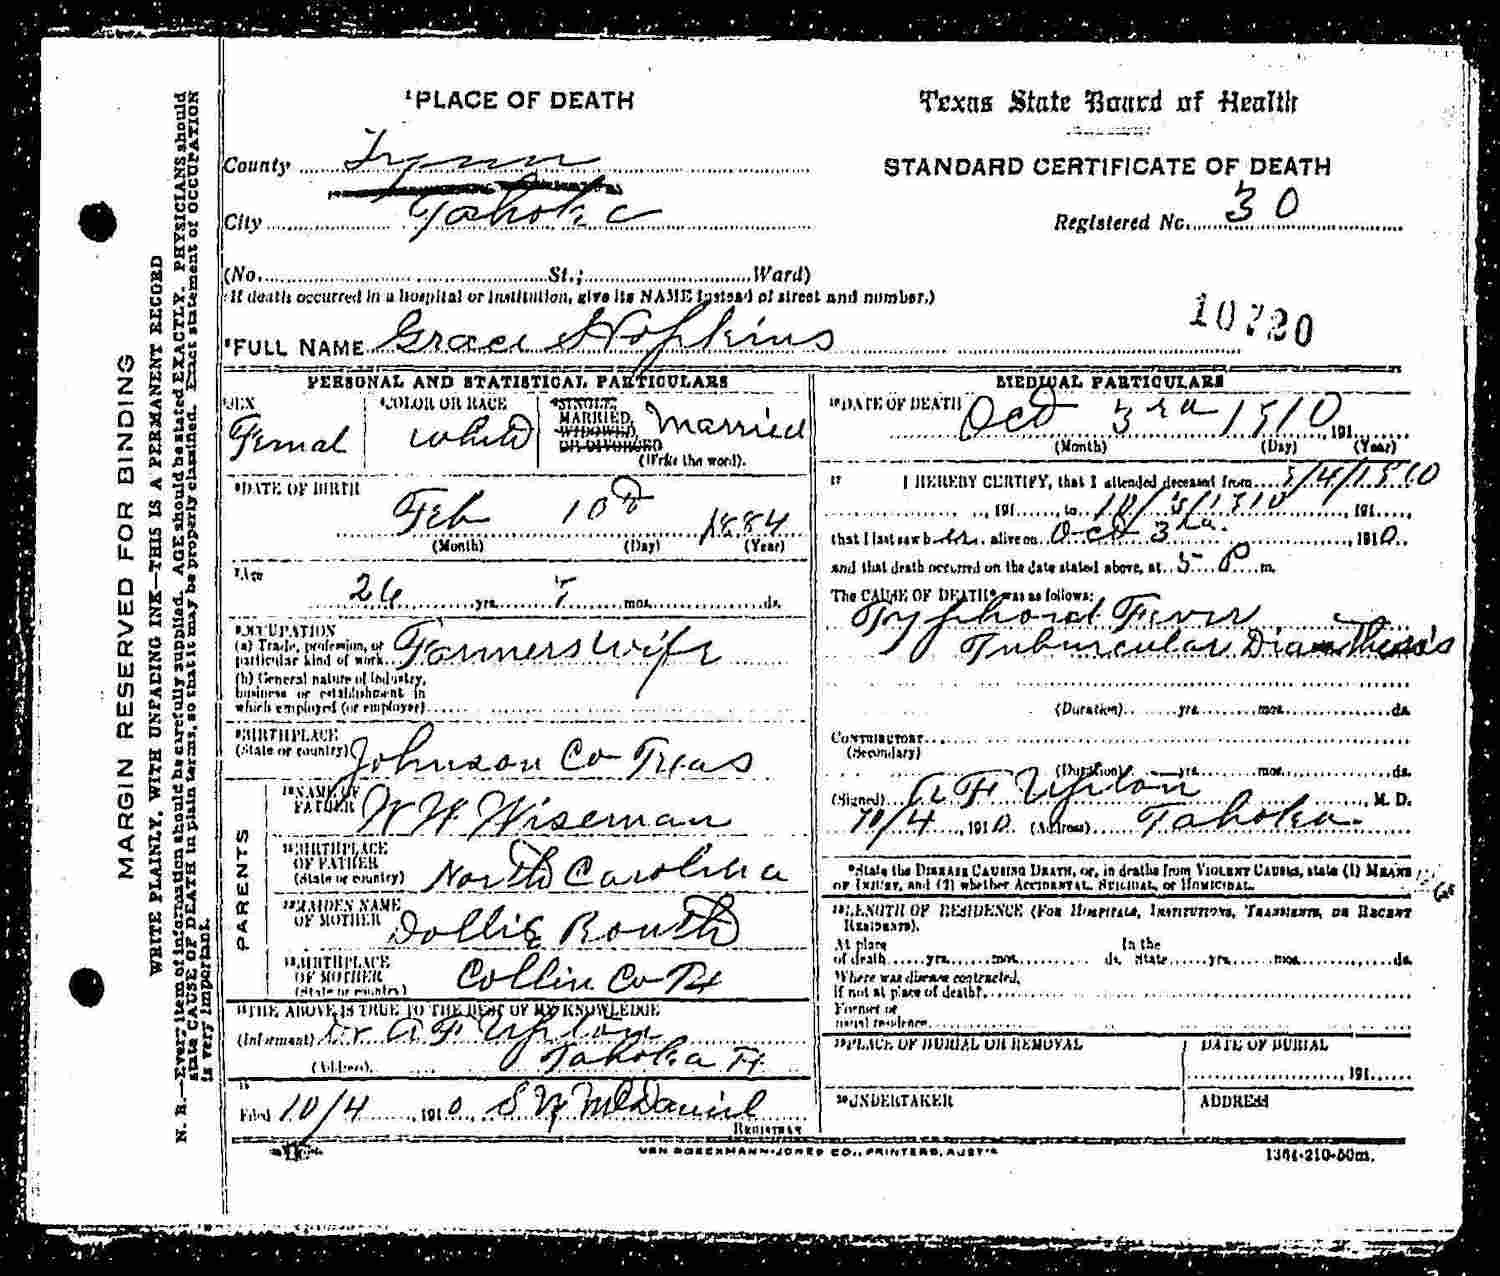 ¹PLACE OF DEATH
County Lynn
City Tahoka
(No. St.; Ward)
(If death occurred in a hospital or institution, give its NAME instead of street and number.)
Texas State Board of Health
STANDARD CERTIFICATE OF DEATH
Registered No. 30
10720
²FULL NAME Grace Hopkins
PERSONAL AND STATISTICAL PARTICULARS
SEX
Femal
⁴COLOR OR RACE
White
⁵SINGLE,
MARRIED,
WIDOWED,
OR DIVORCED
(Write the word).
Married
⁶DATE OF BIRTH
Feb 10th 1884
(Month) (Day) (Year)
⁷AGE
26 yrs. 7 mos. ds.
⁸OCCUPATION
(a) Trade, profession, or
particular kind of work Farmers Wife
(b) General nature of industry,
business or establishment in
which employed (or employer)
⁹BIRTHPLACE
(State or country) Johnson Co Texas
PARENTS
¹⁰NAME OF
FATHER W W Wiseman
¹¹BIRTHPLACE
OF FATHER
(State or country) North Carolina
¹²MAIDEN NAME
OF MOTHER Dollie Routh
¹³BIRTHPLACE
OF MOTHER
(State or country) Collin Co Tx
¹⁴THE ABOVE IS TRUE TO THE BEST OF MY KNOWLEDGE
(Informant) Dr A F Upton
(Address) Tahoka Tx
15
Filed 10/4, 1910, S W McDaniel
REGISTRAR
MEDICAL PARTICULARS
¹⁶DATE OF DEATH
Oct 3rd 1910, 191
(Month) (Day) (Year)
17 I HEREBY CERTIFY, that I attended deceased from /4/1910
, 191, to 10/3/1910, 191,
that I last saw her alive on Oct 3rd, 1910,
and that death occurred on the date stated above, at 5 P m.
The CAUSE OF DEATH* was as follows:
Typhoid Fever
Tubercular
(Duration) yrs. mos. ds.
CONTRIBUTORY
(Secondary)
(Duration) yrs. mos. ds.
(Signed) A F Upton, M. D.
10/4, 1910 (Address) Tahoka
*State the DISEASE CAUSING DEATH, or, in deaths from VIOLENT CAUSES, state (1) MEANS
OF INJURY, and (2) whether ACCIDENTAL, SUICIDAL, or HOMICIDAL.
¹⁸LENGTH OF RESIDENCE (FOR HOSPITALS, INSTITUTIONS, TRANSIENTS, OR RECENT
RESIDENTS).
At place In the
of death yrs. mos. ds. State yrs. mos. ds.
Where was disease contracted,
if not at place of death?
Former or
usual residence
¹⁹PLACE OF BURIAL OR REMOVAL
DATE OF BURIAL
191
²⁰UNDERTAKER
ADDRESS
VON BOECKMANN-JONES CO., PRINTERS, AUSTIN
1364-210-50m.
MARGIN RESERVED FOR BINDING
WRITE PLAINLY, WITH UNFADING INK—THIS IS A PERMANENT RECORD
N. B.—Every item of information should be carefully supplied. AGE should be stated EXACTLY. PHYSICIANS should
state CAUSE OF DEATH in plain terms, so that it may be properly classified. Exact statement of OCCUPATION
is very important.